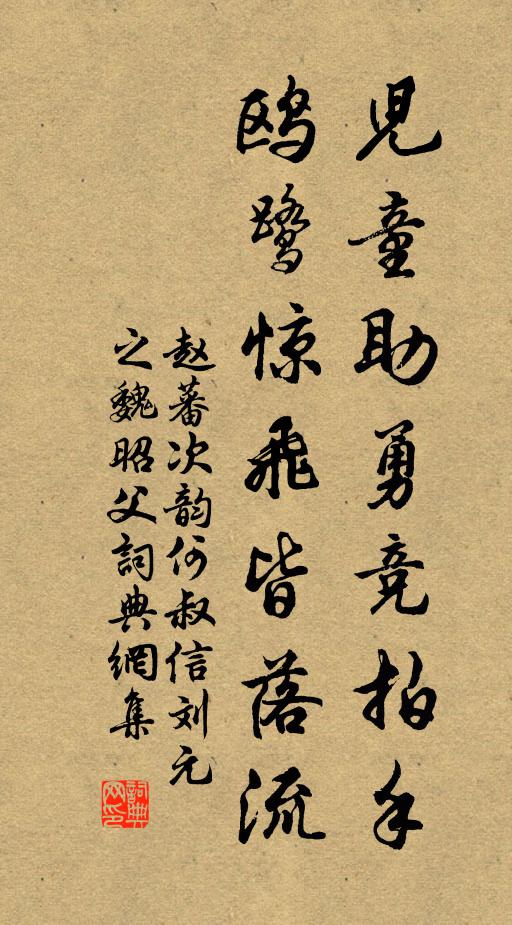 児童助勇竞拍手
鸥鹭惊飛皆落流
赵蕃次韵何叔信刘元
之魏昭父詞典網集
詞典
网印